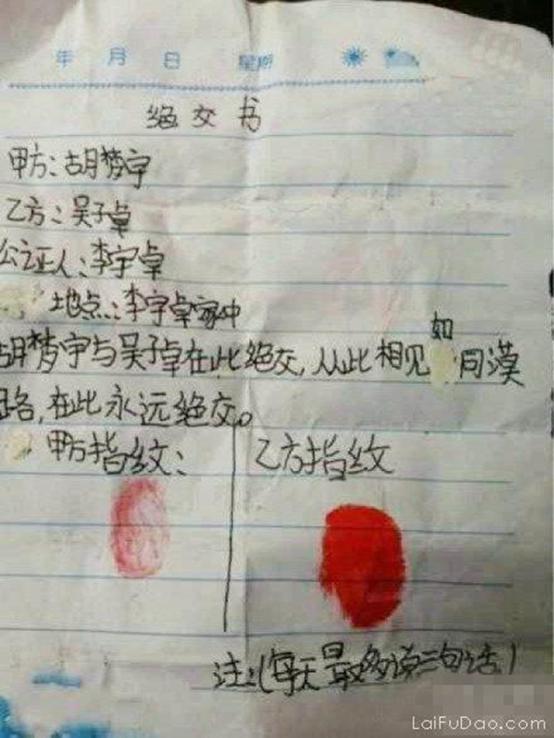 年 月 日 星期
绝交书
甲方:胡梦宇
乙方:吴子卓
公证人:李宇卓
地点:李宇卓家中
胡梦宇与吴子卓在此绝交,从此相见如同漠
路,在此永远绝交。
甲方指纹: 乙方指纹
注:(每天最多说三句话)
LaiFuDao.com